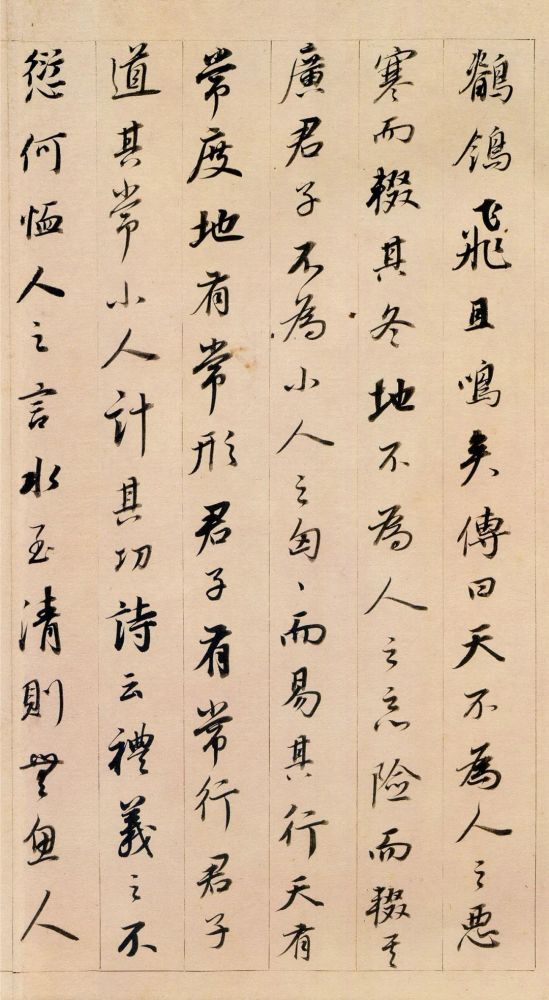 鶺鴒飛且鳴矣傳曰天不為人之惡
寒而輟其冬地不為人之惡險而輟其
廣君子不為小人之匈、而易其行天有
常度地有常形君子有常行君子
道其常小人計其功詩云禮義之不
愆何恤人之言水至清則無魚人